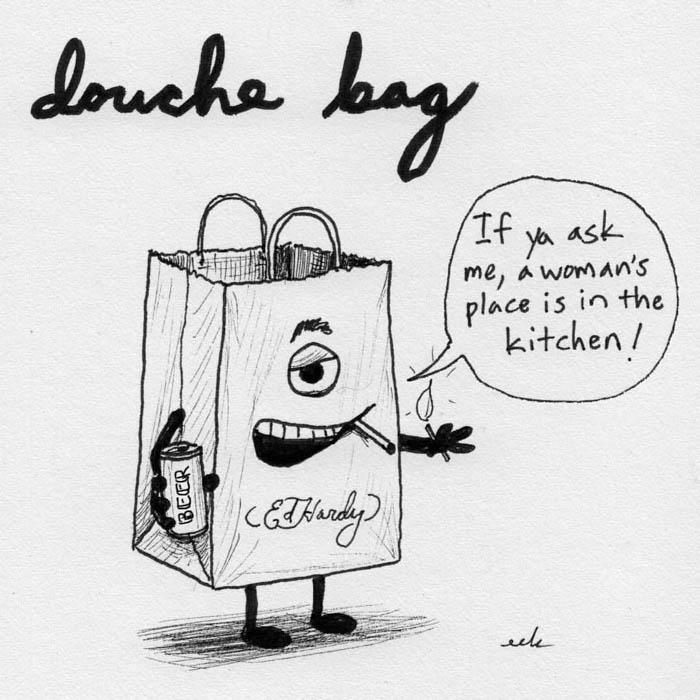 douche bag
If ya ask
me, a woman's
place is in the
kitchen!
BEER
(Ed Hardy)
eek